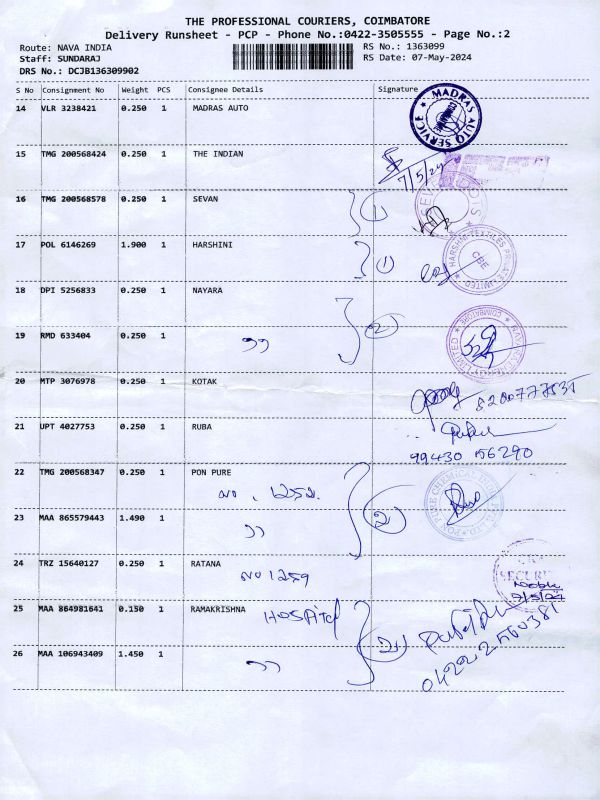 THE PROFESSIONAL COURIERS, COIMBATORE
Delivery Runsheet - PCP - Phone No.:0422-3505555 - Page No.:2
Route: NAVA INDIA RS No.: 1363099
Staff: SUNDARAJ RS Date: 07-May-2024
DRS No.: DCJB136309902
S No Consignment No Weight PCS Consignee Details Signature
14 VLR 3238421 0.250 1 MADRAS AUTO
MADRAS AUTO SERVICE
15 TMG 200568424 0.250 1 THE INDIAN
7/5/24
16 TMG 200568578 0.250 1 SEVAN 1
17 POL 6146269 1.900 1 HARSHINI 1
HARSHNI TEXTILES PRIVATE LIMITED CBE
18 DPI 5256833 0.250 1 NAYARA
2
19 RMD 633404 0.250 1 ''
COIMBATORE
20 MTP 3076978 0.250 1 KOTAK
21 UPT 4027753 0.250 1 RUBA
99430 56290
22 TMG 200568347 0.250 1 PON PURE
NO. 1252.
2
PON PURE CHEMICAL
23 MAA 865579443 1.490 1
''
24 TRZ 15640127 0.250 1 RATANA
NO 1259
SECURITY
7/5/24
25 MAA 864981641 0.150 1 RAMAKRISHNA HOSPITAL
2
0422 2500381
26 MAA 106943409 1.450 1
''